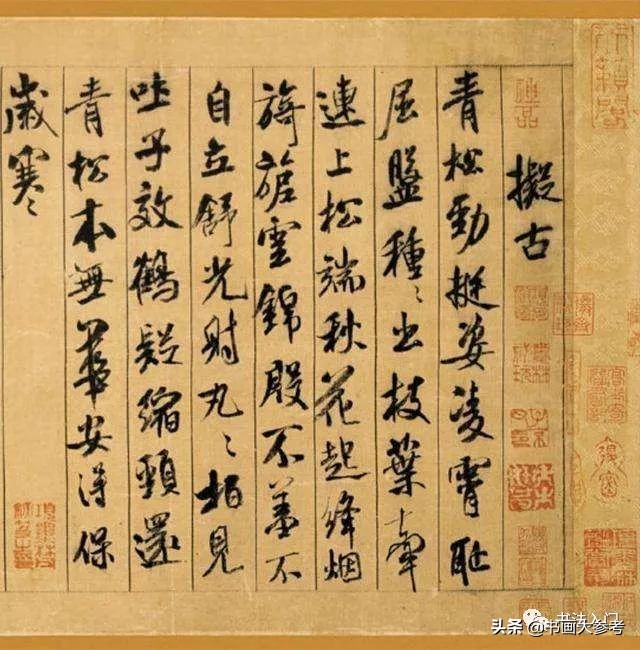 擬古
青松勁挺姿凌霄耻
屈盤種〻出枝葉牽
連上松端秋花起絳烟
旖旎雲錦殷不羞不
自立舒光射丸〻柏見
吐子效鶴疑縮頸還
青松本無華安得保
歲寒〻
书法入门
头条 @书画大参考